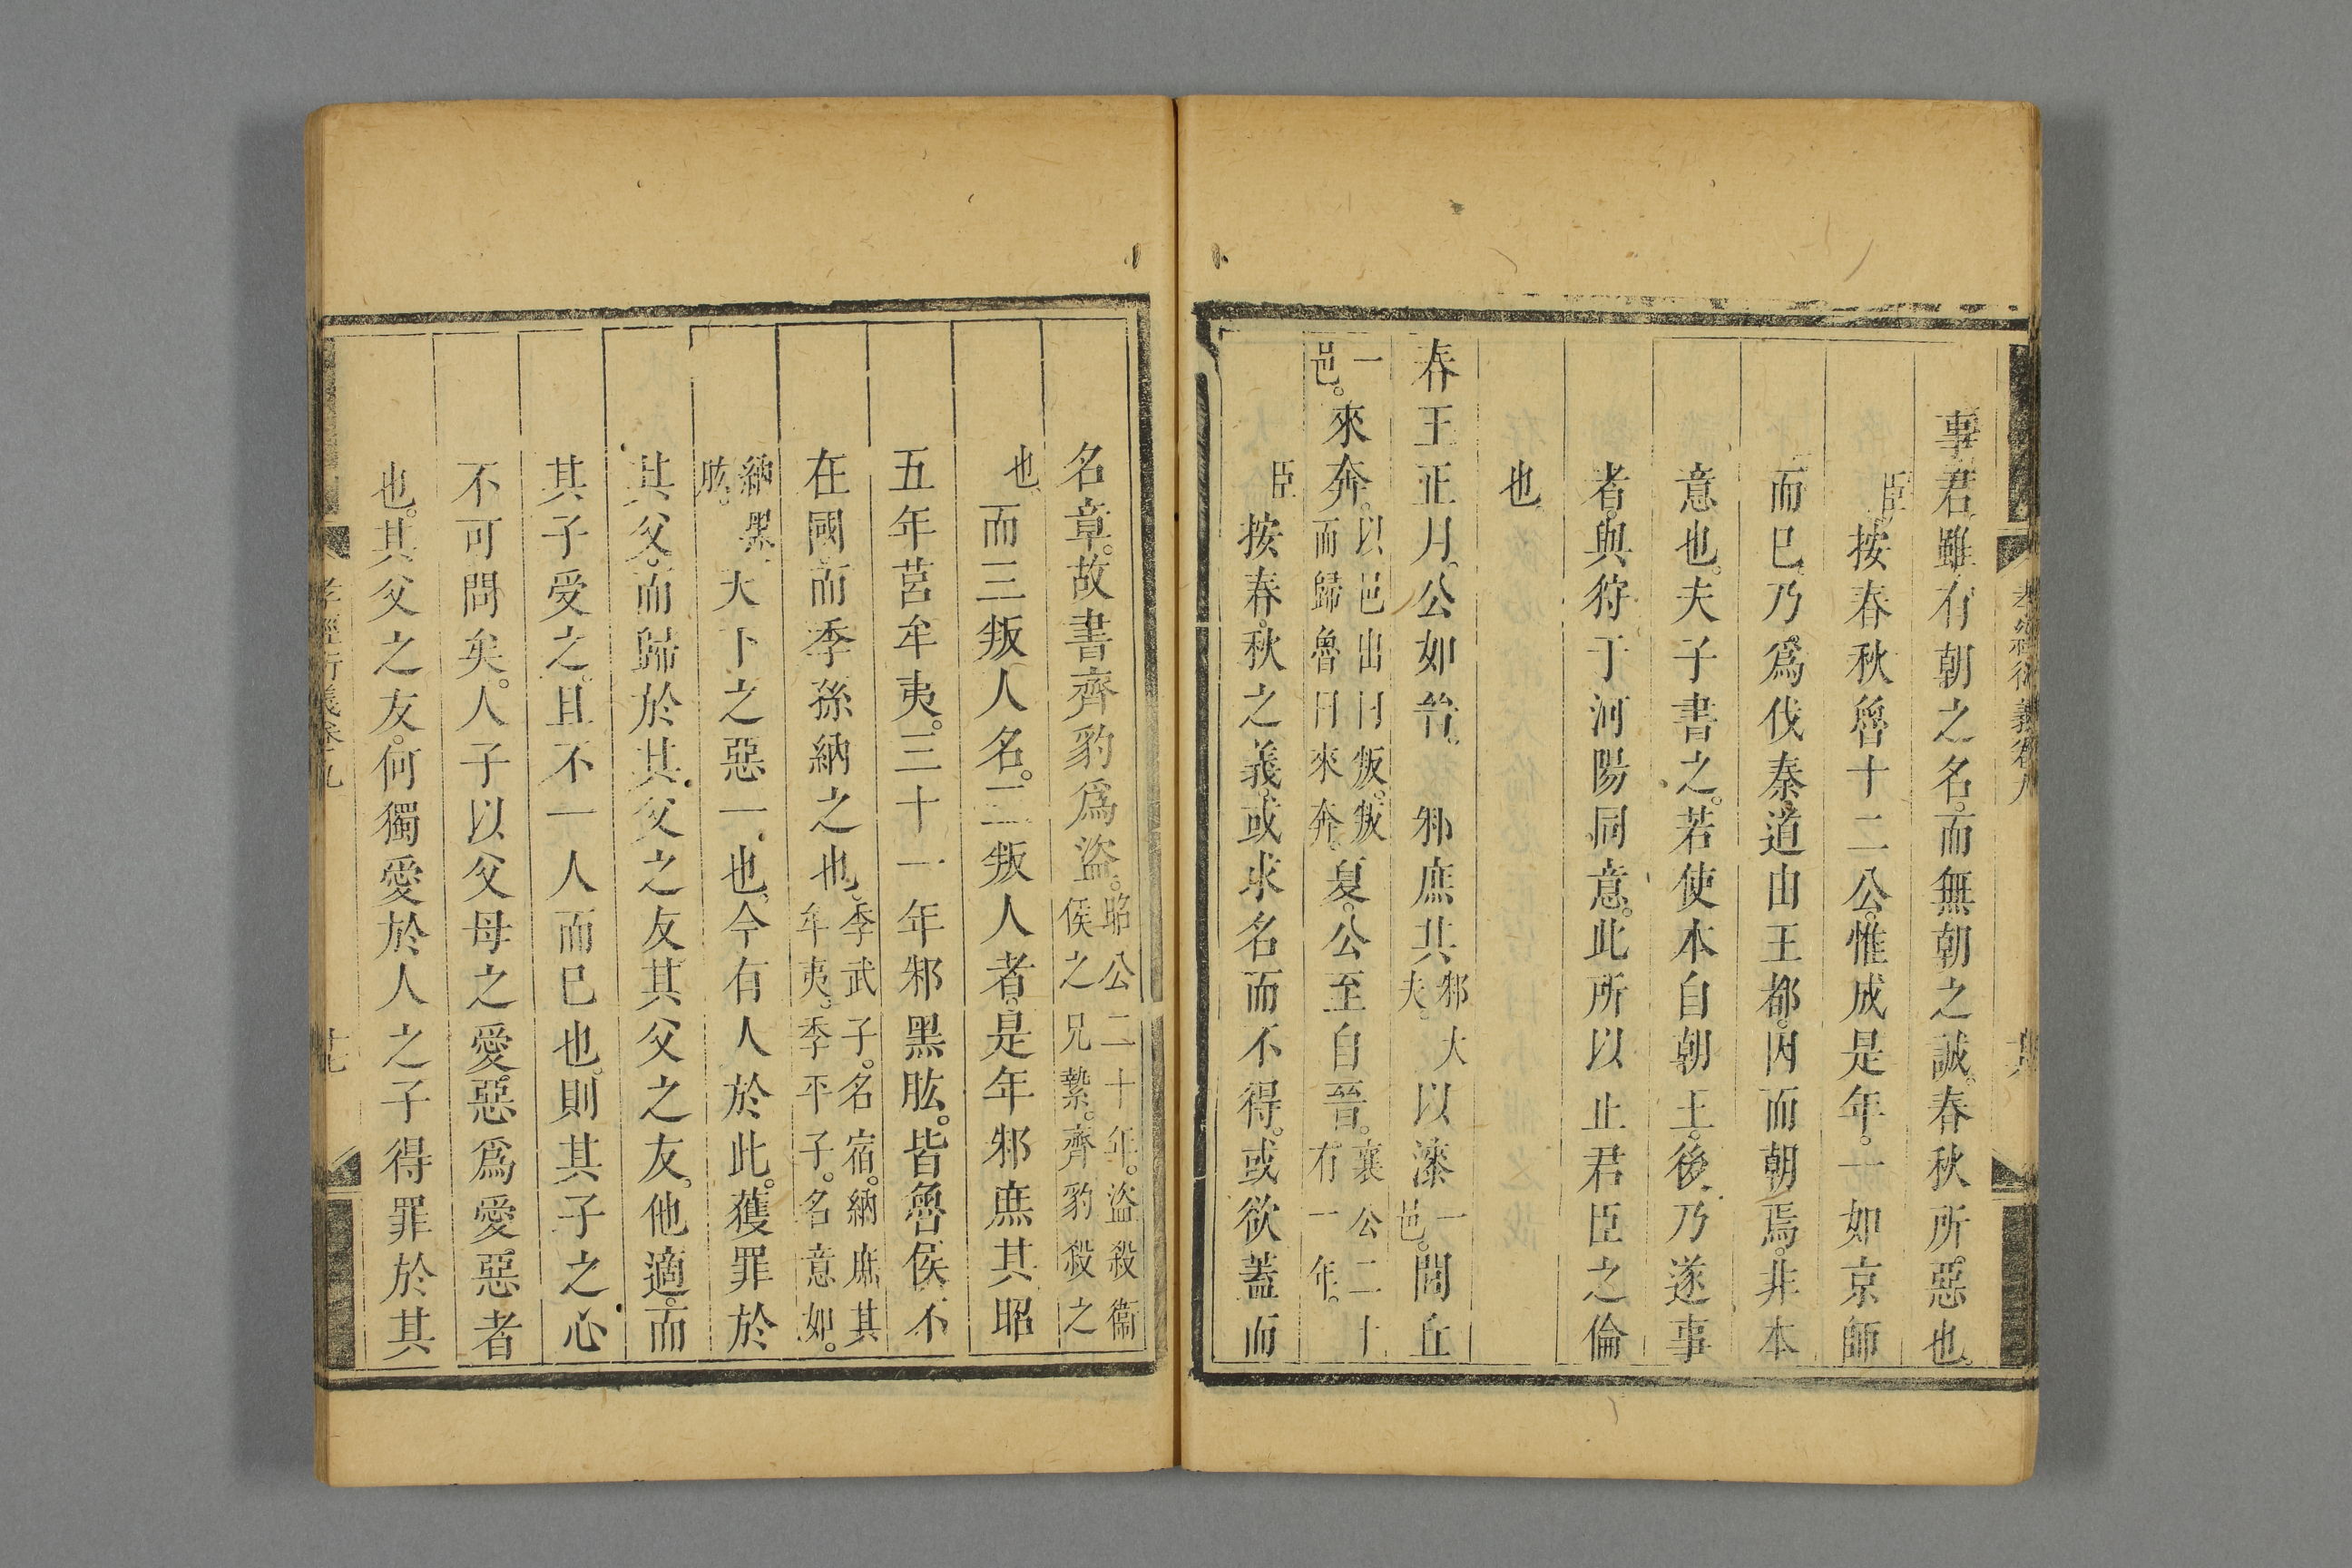 事君雖有朝之名。而無朝之誠。春秋所惡也。
臣按春秋魯十二公。惟成是年。一如京師
而已。乃爲伐秦。道由王都。因而朝焉。非本
意也。夫子書之。若使本自朝王。後乃遂事
者。與狩于河陽同意。此所以止君臣之倫
也。
春王正月。公如晉。邾庶其邾大夫。以漆一邑。閭丘
一邑。來奔。以邑出曰叛。叛而歸魯曰來奔。夏。公至自晉。襄公二十有一年。
臣按春秋之義。或求名而不得。或欲蓋而
名章。故書齊豹爲盜。昭公二十年。盜殺衞侯之兄縶。齊豹殺之
也。而三叛人名。三叛人者。是年邾庶其昭
五年莒牟夷。三十一年邾黑肱。皆魯侯不
在國而季孫納之也。季武子。名宿。納庶其牟夷。季平子。名意如。
納黑肱。天下之惡一也。今有人於此。獲罪於
其父。而歸於其父之友。其父之友。他適。而
其子受之。且不一人而已也。則其子之心
不可問矣。人子以父母之愛惡爲愛惡者
也。其父之友。何獨愛於人之子得罪於其